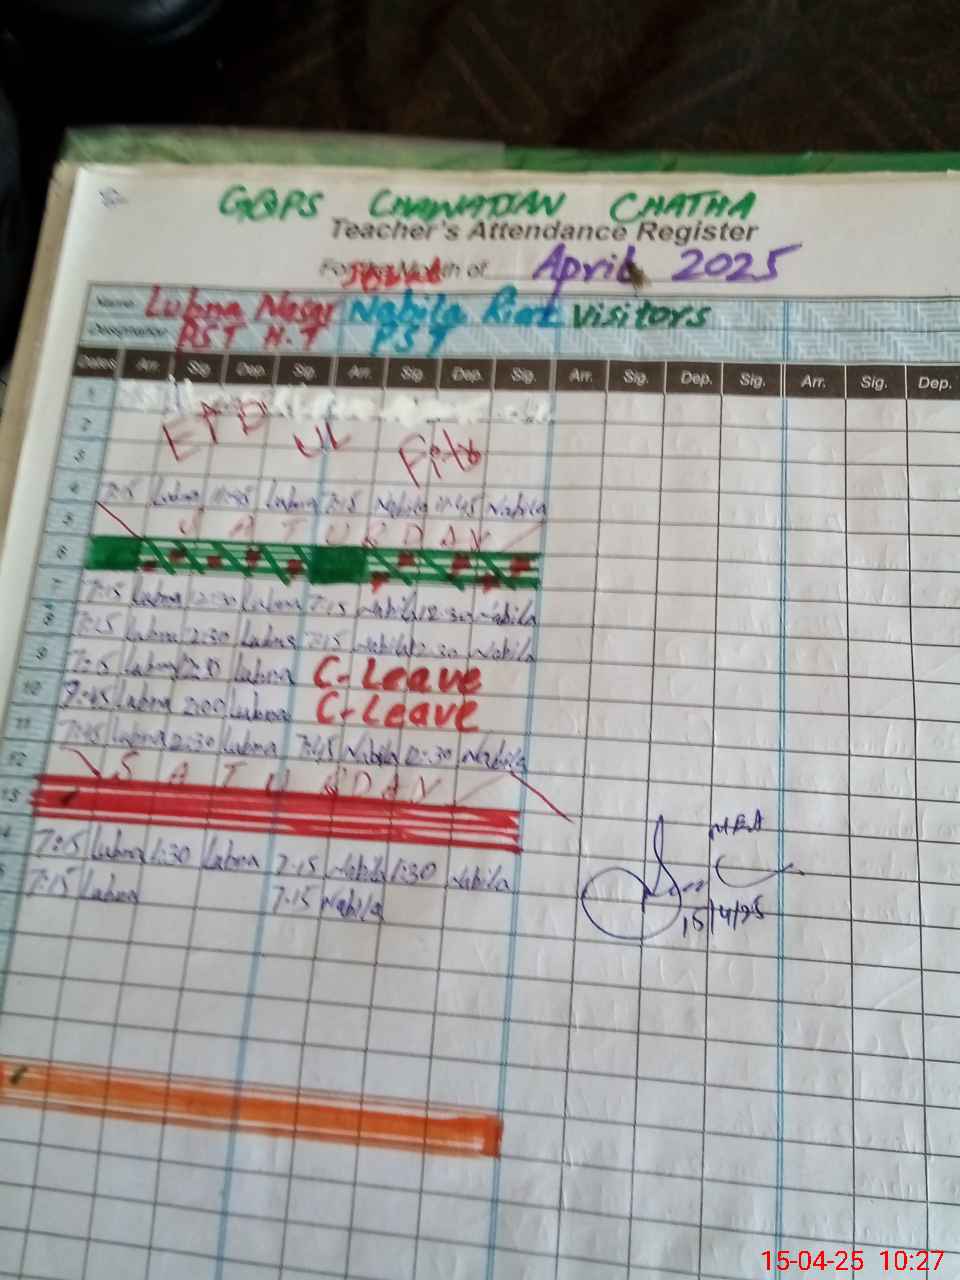 GGPS CHAWAJAN CHATHA
Teacher's Attendance Register
For the Month of April 2025
Name: Lubna Nasar Nabila Riaz Visitors
Designation: PST H.T PST
Dates Arr. Sig. Dep. Sig. Arr. Sig. Dep. Sig. Arr. Sig. Dep. Sig. Arr. Sig. Dep.
1
2 EID UL
3 Fitr
4 7:15 Lubna 11:45 Lubna 7:15 Nabila 11:45 Nabila
5 SATURDAY
6
7 7:15 Lubna 12:30 Lubna 7:15 Nabila 12:30 Nabila
8 7:15 Lubna 12:30 Lubna 7:15 Nabila 12:30 Nabila
9 7:15 Lubna 12:30 Lubna C-Leave
10 7:45 Lubna 2:00 Lubna C-Leave
11 7:45 Lubna 12:30 Lubna 7:45 Nabila 12:30 Nabila
12 SATURDAY
13
MEA
7:15 Lubna 1:30 Lubna 7:15 Nabila 1:30 Nabila
7:15 Lubna 7:15 Nabila
15/4/25
15-04-25 10:27